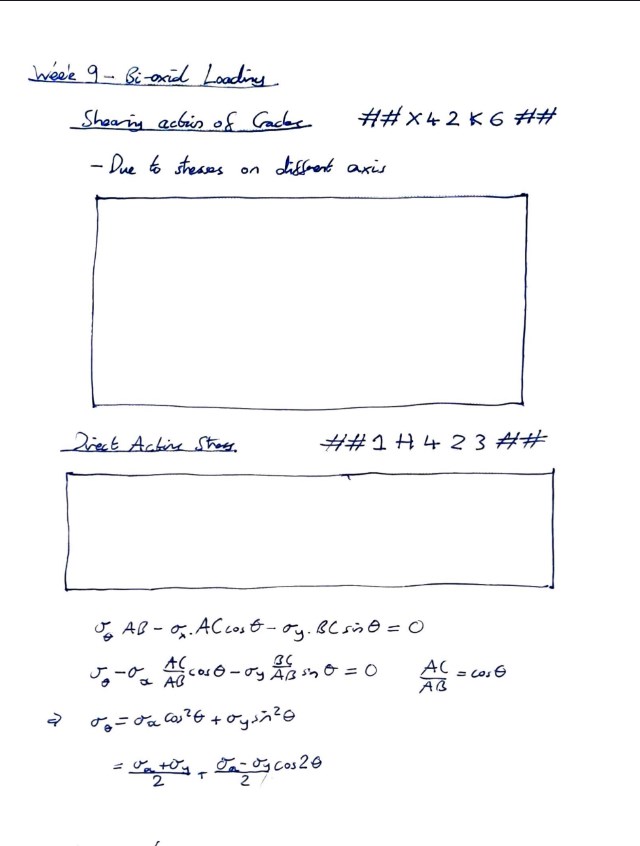 Week 9 - Bi-axial Loading
Shearing action of Cracks ##X42K6##
- Due to stresses on different axis
Direct Acting Stress ##1H423##
σ_θ AB - σ_x . AC cos θ - σ_y . BC sin θ = 0
σ_θ - σ_x AC/AB cos θ - σ_y BC/AB sin θ = 0 AC/AB = cos θ
⇒ σ_θ = σ_x cos²θ + σ_y sin²θ
= σ_x + σ_y / 2 + σ_x - σ_y / 2 cos 2θ